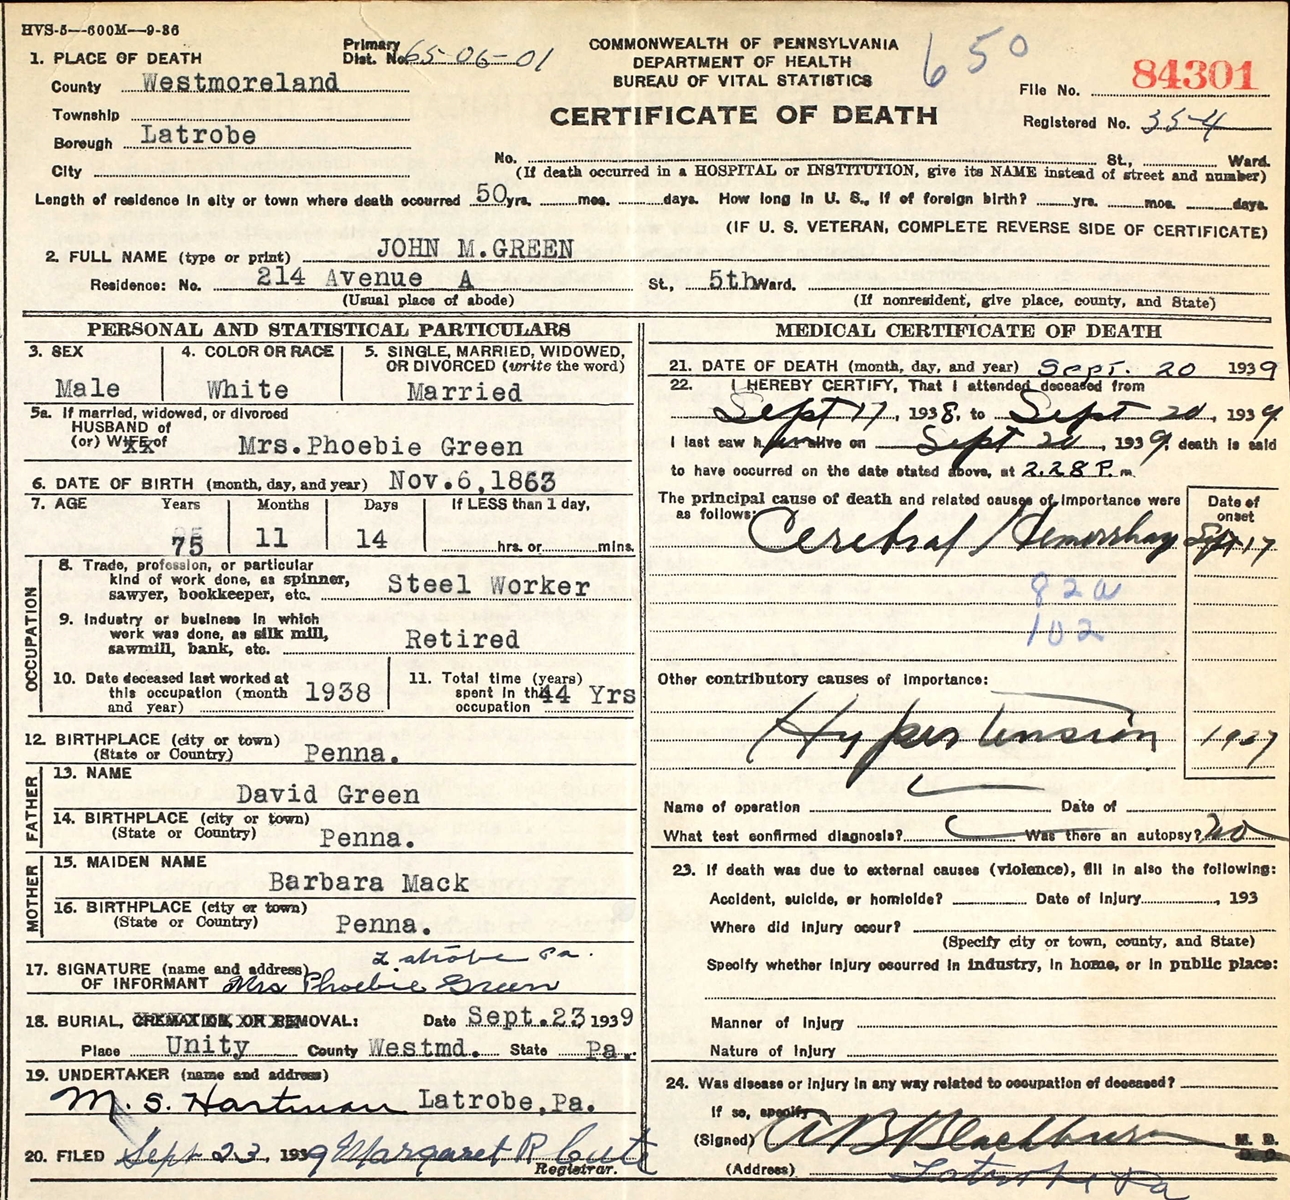 HVS-5—600M—9-36
Primary Dist. No. 65-06-01
COMMONWEALTH OF PENNSYLVANIA
DEPARTMENT OF HEALTH
BUREAU OF VITAL STATISTICS
650
CERTIFICATE OF DEATH
File No. 84301
Registered No. 354
1. PLACE OF DEATH
County Westmoreland
Township
Borough Latrobe
City
No. St., Ward.
(If death occurred in a HOSPITAL or INSTITUTION, give its NAME instead of street and number)
Length of residence in city or town where death occurred 50 yrs. mos. days. How long in U. S., if of foreign birth? yrs. mos. days.
(IF U. S. VETERAN, COMPLETE REVERSE SIDE OF CERTIFICATE)
2. FULL NAME (type or print) JOHN M. GREEN
Residence: No. 214 Avenue A St., 5th Ward.
(Usual place of abode) (If nonresident, give place, county, and State)
PERSONAL AND STATISTICAL PARTICULARS
3. SEX Male
4. COLOR OR RACE White
5. SINGLE, MARRIED, WIDOWED, OR DIVORCED (write the word) Married
5a. If married, widowed, or divorced
HUSBAND of
(or) WIFE of Mrs.Phoebie Green
6. DATE OF BIRTH (month, day, and year) Nov.6,1863
7. AGE Years 75 Months 11 Days 14 If LESS than 1 day, hrs. or mins.
OCCUPATION
8. Trade, profession, or particular kind of work done, as spinner, sawyer, bookkeeper, etc. Steel Worker
9. Industry or business in which work was done, as silk mill, sawmill, bank, etc. Retired
10. Date deceased last worked at this occupation (month and year) 1938
11. Total time (years) spent in this occupation 44 Yrs
12. BIRTHPLACE (city or town)
(State or Country) Penna.
FATHER
13. NAME
David Green
14. BIRTHPLACE (city or town)
(State or Country) Penna.
MOTHER
15. MAIDEN NAME
Barbara Mack
16. BIRTHPLACE (city or town)
(State or Country) Penna.
Latrobe Pa.
17. SIGNATURE (name and address)
OF INFORMANT Mrs Phoebie Green
18. BURIAL, CREMATION, OR REMOVAL: Date Sept.23 1939
Place Unity County Westmd. State Pa.
19. UNDERTAKER (name and address)
M. S. Hartman Latrobe,Pa.
20. FILED Sept 23, 1939 Margaret R
Registrar.
MEDICAL CERTIFICATE OF DEATH
21. DATE OF DEATH (month, day, and year) Sept. 20 1939
22. I HEREBY CERTIFY, That I attended deceased from
Sept 17, 1938, to Sept 20, 1939
I last saw h alive on Sept 20, 1939, death is said
to have occurred on the date stated above, at 2.28 P. m.
The principal cause of death and related causes of importance were as follows:
Date of onset
Cerebral Hemorrhag Sept 17
82a
102
Other contributory causes of importance:
Hypertension 1937
Name of operation Date of
What test confirmed diagnosis? Was there an autopsy? no
23. If death was due to external causes (violence), fill in also the following:
Accident, suicide, or homicide? Date of injury , 193
Where did injury occur?
(Specify city or town, county, and State)
Specify whether injury occurred in industry, in home, or in public place:
Manner of injury
Nature of injury
24. Was disease or injury in any way related to occupation of deceased?
If so, specify
(Signed) A B Blackburn M. D.
D. O.
(Address) Latrobe Pa